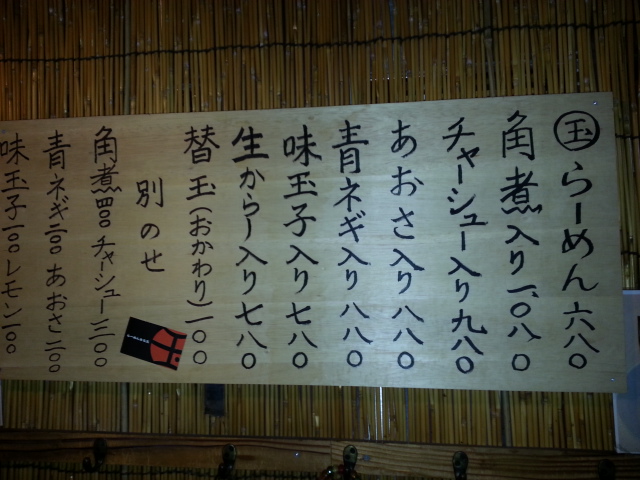 玉らーめん 六八〇
角煮入り 一、〇八〇
チャーシュー入り 九八〇
あおさ入り 八八〇
青ネギ入り 八八〇
味玉子入り 七八〇
生からし入り 七八〇
替玉(おかわり)一〇〇
別のせ
角煮四〇〇 チャーシュー三〇〇
青ネギ二〇〇 あおさ二〇〇
味玉子一〇〇 レモン一〇〇